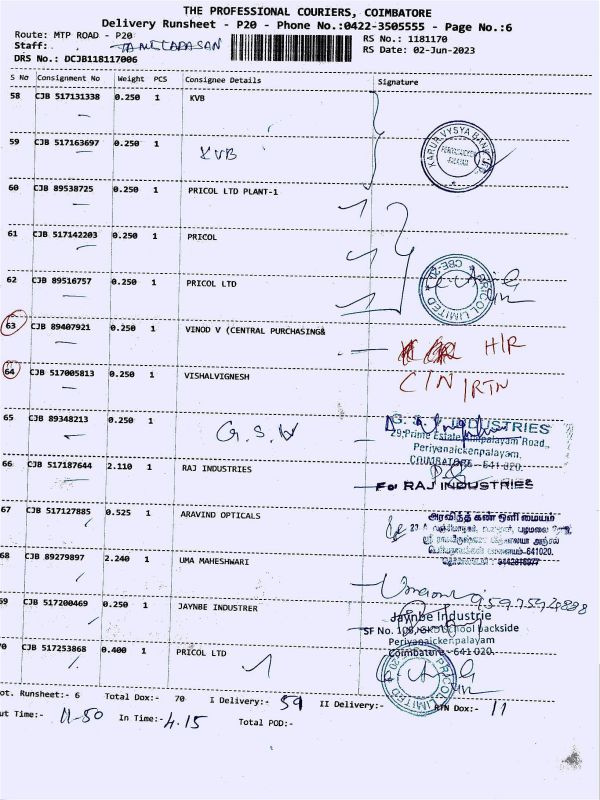 THE PROFESSIONAL COURIERS, COIMBATORE
Delivery Runsheet - P20 - Phone No.:0422-3505555 - Page No.:6
Route: MTP ROAD - P20
RS No.: 1181170
Staff:
RS Date: 02-Jun-2023
DRS No.: DCJB118117006
S No Consignment No Weight PCS Consignee Details Signature
58 CJB 517131338 0.250 1 KVB
KARUR VYSYA BANK
59 CJB 517163697 0.250 1
KVB
60 CJB 89538725 0.250 1 PRICOL LTD PLANT-1
61 CJB 517142203 0.250 1 PRICOL
62 CJB 89516757 0.250 1 PRICOL LTD
PRICOL LIMITED
63 CJB 89407921 0.250 1 VINOD V (CENTRAL PURCHASING&
H/R
64 CJB 517005813 0.250 1 VISHALVIGNESH
C/N/RTN
65 CJB 89348213 0.250 1
G.S.V
G. S. V INDUSTRIES
29, Prime Estate, Road.,
Periyanaickenpalayam,
COIMBATORE - 641 020.
66 CJB 517187644 2.110 1 RAJ INDUSTRIES
For RAJ INDUSTRIES
67 CJB 517127885 0.525 1 ARAVIND OPTICALS
அரவிந்த் கண் ஒளி மையம்
68 CJB 89279897 2.240 1 UMA MAHESHWARI
69 CJB 517200469 0.250 1 JAYNBE INDUSTRER
Jaynbe Industrie
SF No. School backside
Periyanaickenpalayam
Coimbatore - 641 020.
70 CJB 517253868 0.400 1 PRICOL LTD
PRICOL LIMITED
ot. Runsheet:- 6 Total Dox:- 70 I Delivery:- 59 II Delivery:- RTN Dox:- 11
ut Time:- 11-50 In Time:- 4.15 Total POD:-